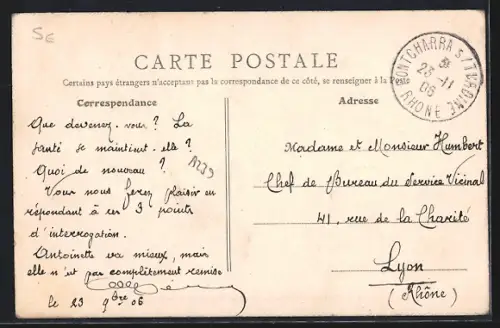 SE
CARTE POSTALE
Certains pays étrangers n'acceptant pas la correspondance de ce côté, se renseigner à la Poste
PONTCHARRA S/TURDINE
23 -11
06
RHONE
Correspondance
Que devenez-vous ? La
santé se maintient-elle ?
Quoi de nouveau ?
Vous nous ferez plaisir en
répondant à ces 3 points
d'interrogation.
Antoinette va mieux, mais
elle n'est pas complitement remise
le 23 9bre 06
Adresse
Madame et Monsieur Humbert
Chef de Bureau du Service Vicinal
41, rue de la Charité
Lyon
(Rhône)